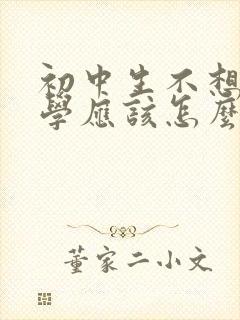 初中生不想
學應該怎麼
董家二小文